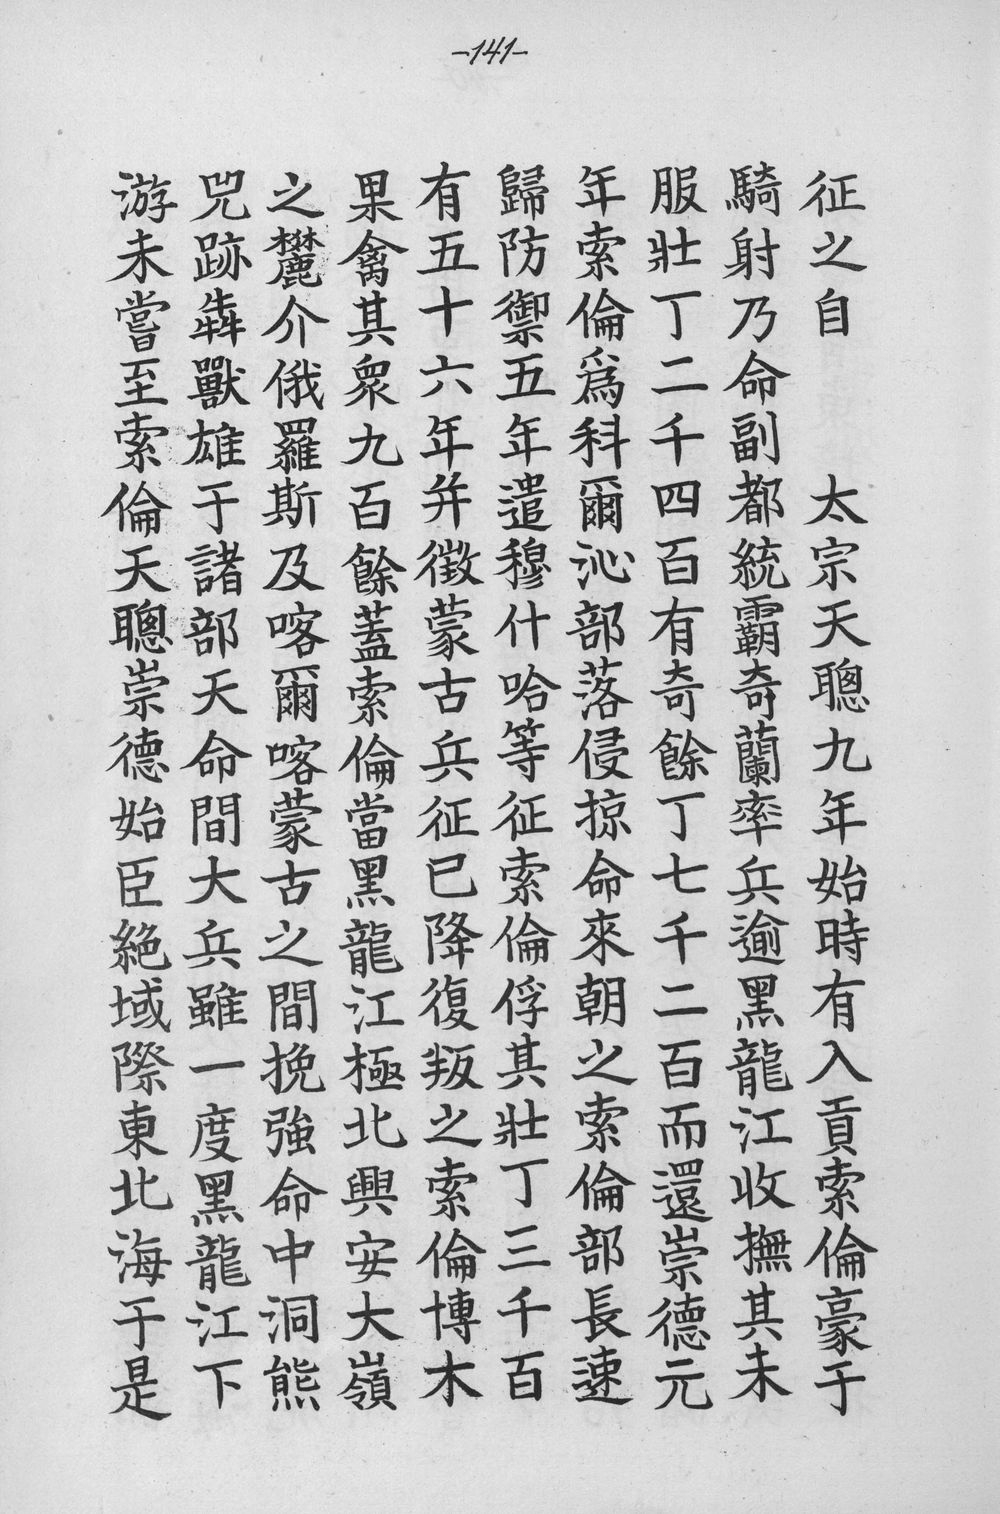 -141-
征之自　太宗天聰九年始時有入貢索倫豪于
騎射乃命副都統霸奇蘭率兵逾黑龍江收撫其未
服壯丁二千四百有奇餘丁七千二百而還崇德元
年索倫爲科爾沁部落侵掠命來朝之索倫部長速
歸防禦五年遣穆什哈等征索倫俘其壯丁三千百
有五十六年并徵蒙古兵征已降復叛之索倫博木
果禽其衆九百餘蓋索倫當黑龍江極北興安大嶺
之麓介俄羅斯及喀爾喀蒙古之間挽強命中洞熊
兕跡犇獸雄于諸部天命間大兵雖一度黑龍江下
游未嘗至索倫天聰崇德始臣絕域際東北海于是